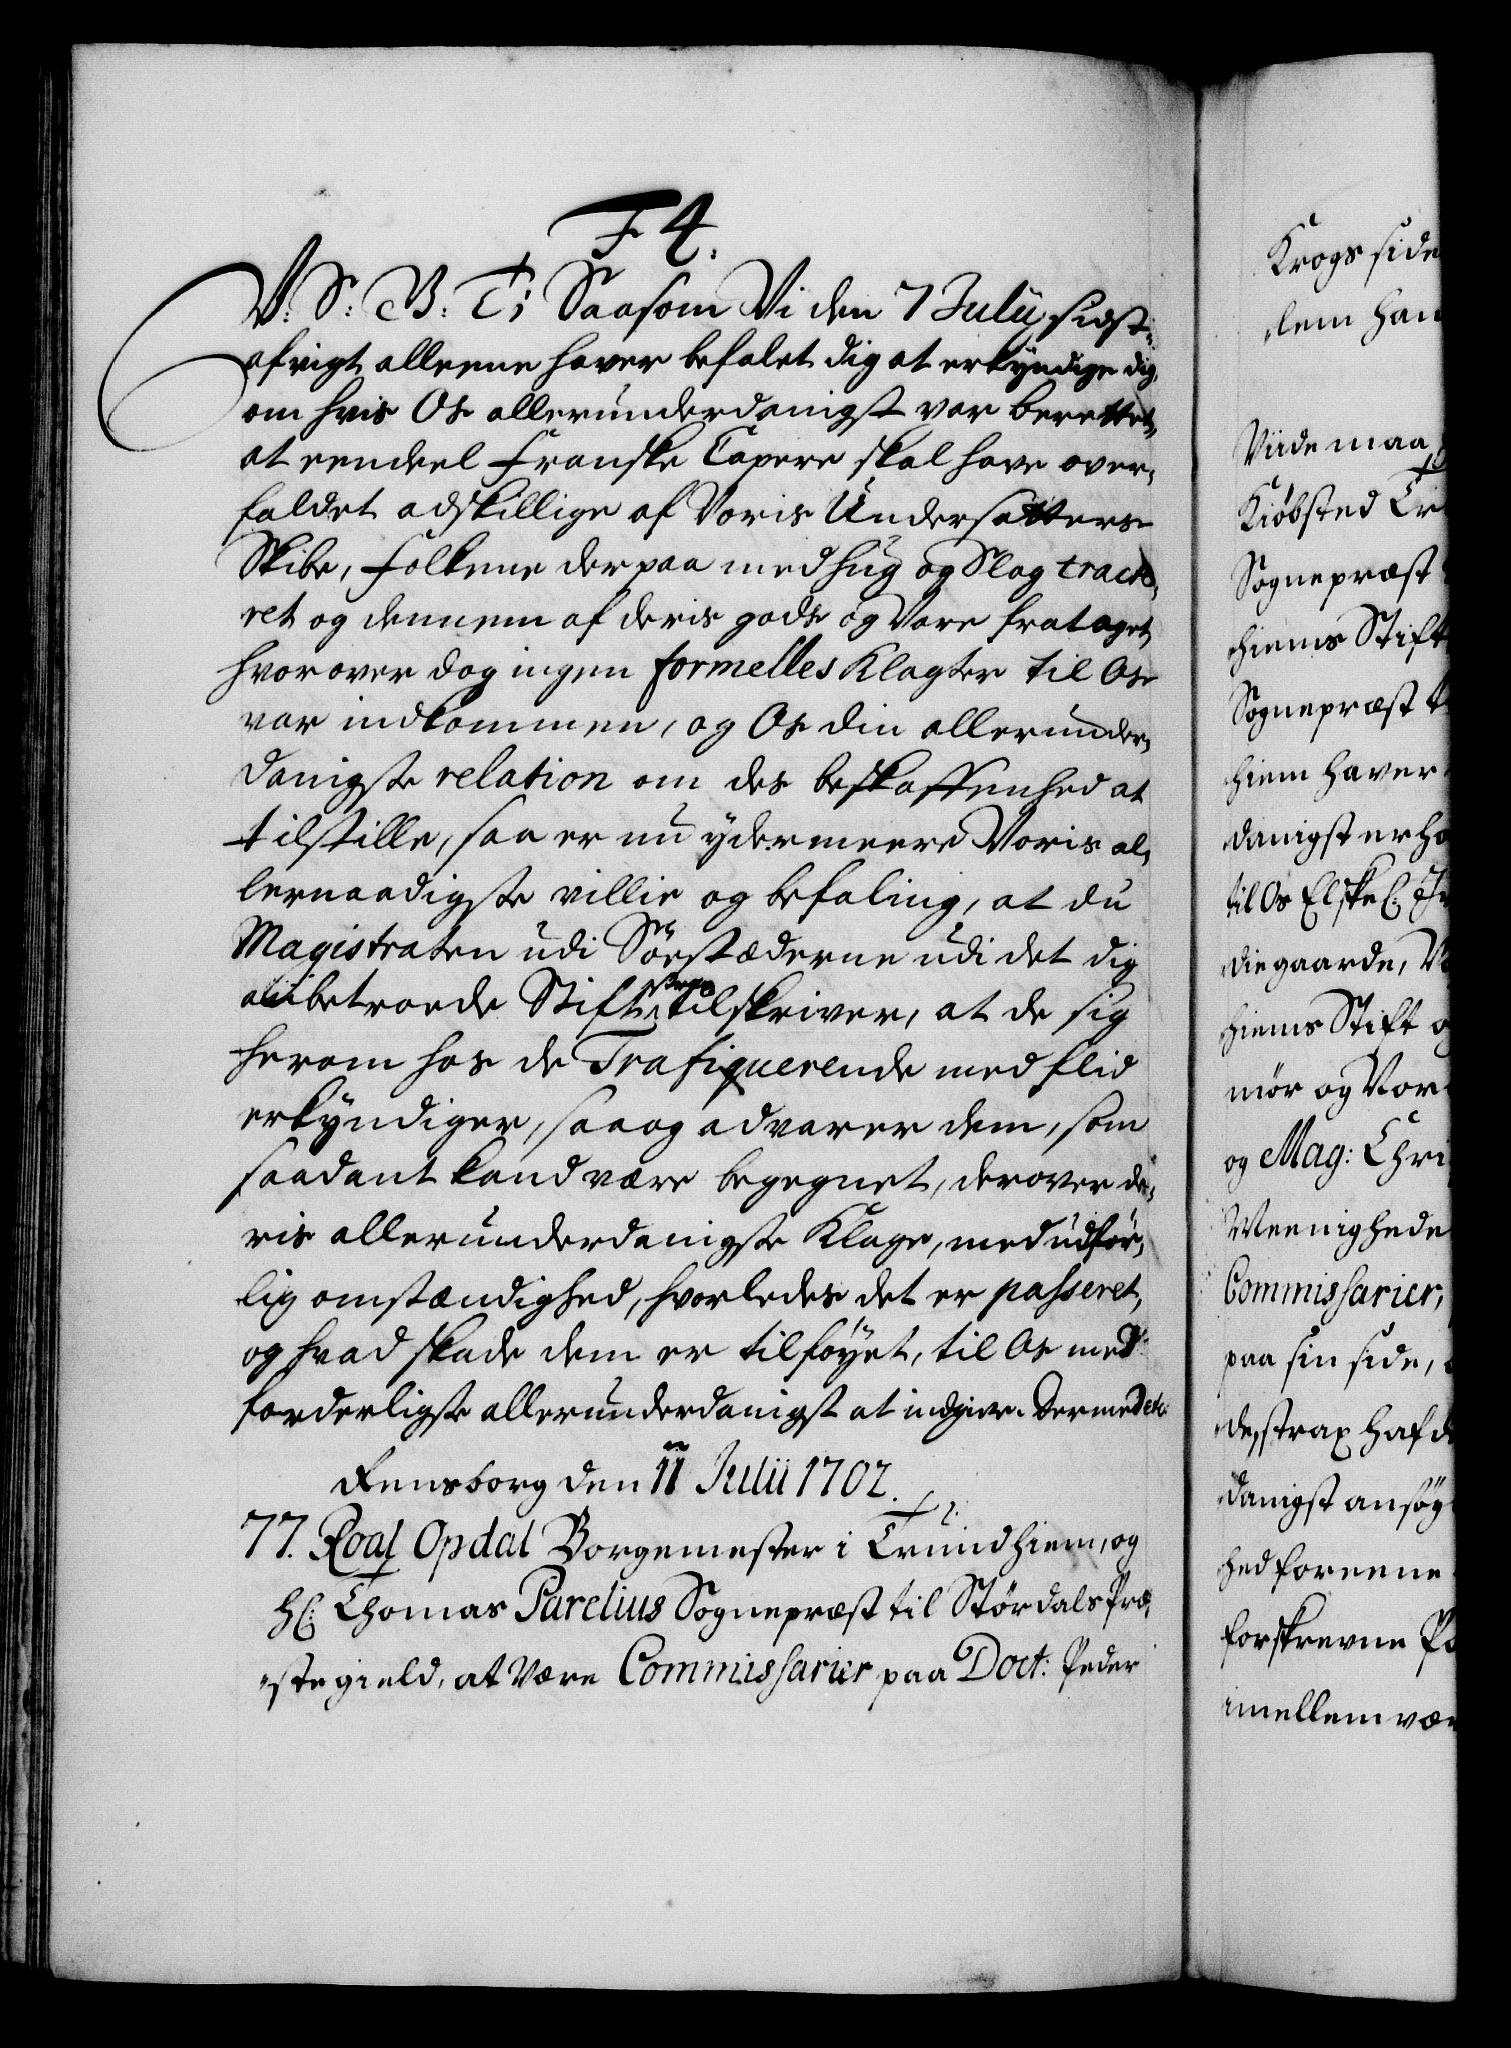 F 4.
V: S: B: T; Saasom Vi den 7 Julii sidst
afvigt alleene haver befalet dig at erkyndige dig,
om hvis Os allerunderdanigst var berettet,
at eendeel Franske Capere skal have over,
faldet adskillige af Voris Undersatters
Skibe, folkene derpaa med hug og Slag tracte,
ret og dennem af deris gods og Vare frataget,
hvorover dog ingen formelles Klagter til Os
var indkommen, og Os din allerunder,
danigste relation om des beskaffenhed at
tilstille, saa er nu ydermeere Voris al,
lernaadigste villie og befaling, at du
Magistraten udi Söestæderne udi det dig
anbetroede Stift tilskriver, at de sig
herom hos de Trafiquerende med flid
erkyndiger, saa og advarer dem, som
saadant kand være begegnet, derover de,
ris allerunderdanigste Klage, med udför,
lig omstændighed, hvorledes det er passeret,
og hvad skade dem er tilföyet, til Os med
forderligste allerunderdanigst at indgive. Dermed etc:
Rensborg den 11 Julii 1702.
77. Roal Opdal Borgemester i Trundhiem, og
Hl: Thomas Parelius Sognepræst til Stördals Præ,
stegield, at Være Commissarier paa Doct: Peder
Krogs side
dem han
Viide maa
Kiöbsted
Sognepræst
hiems Stift
Sognepræst
hiem haver
danigst erho
til Os Elskel:
diegaarde,
hiems Stift
mör og Vor
og Mag: Chri
Meenighede
Commissarier,
paa sin side,
de, strax hafde
danigst ansög
hed foreene
forskrevne
imellem vær